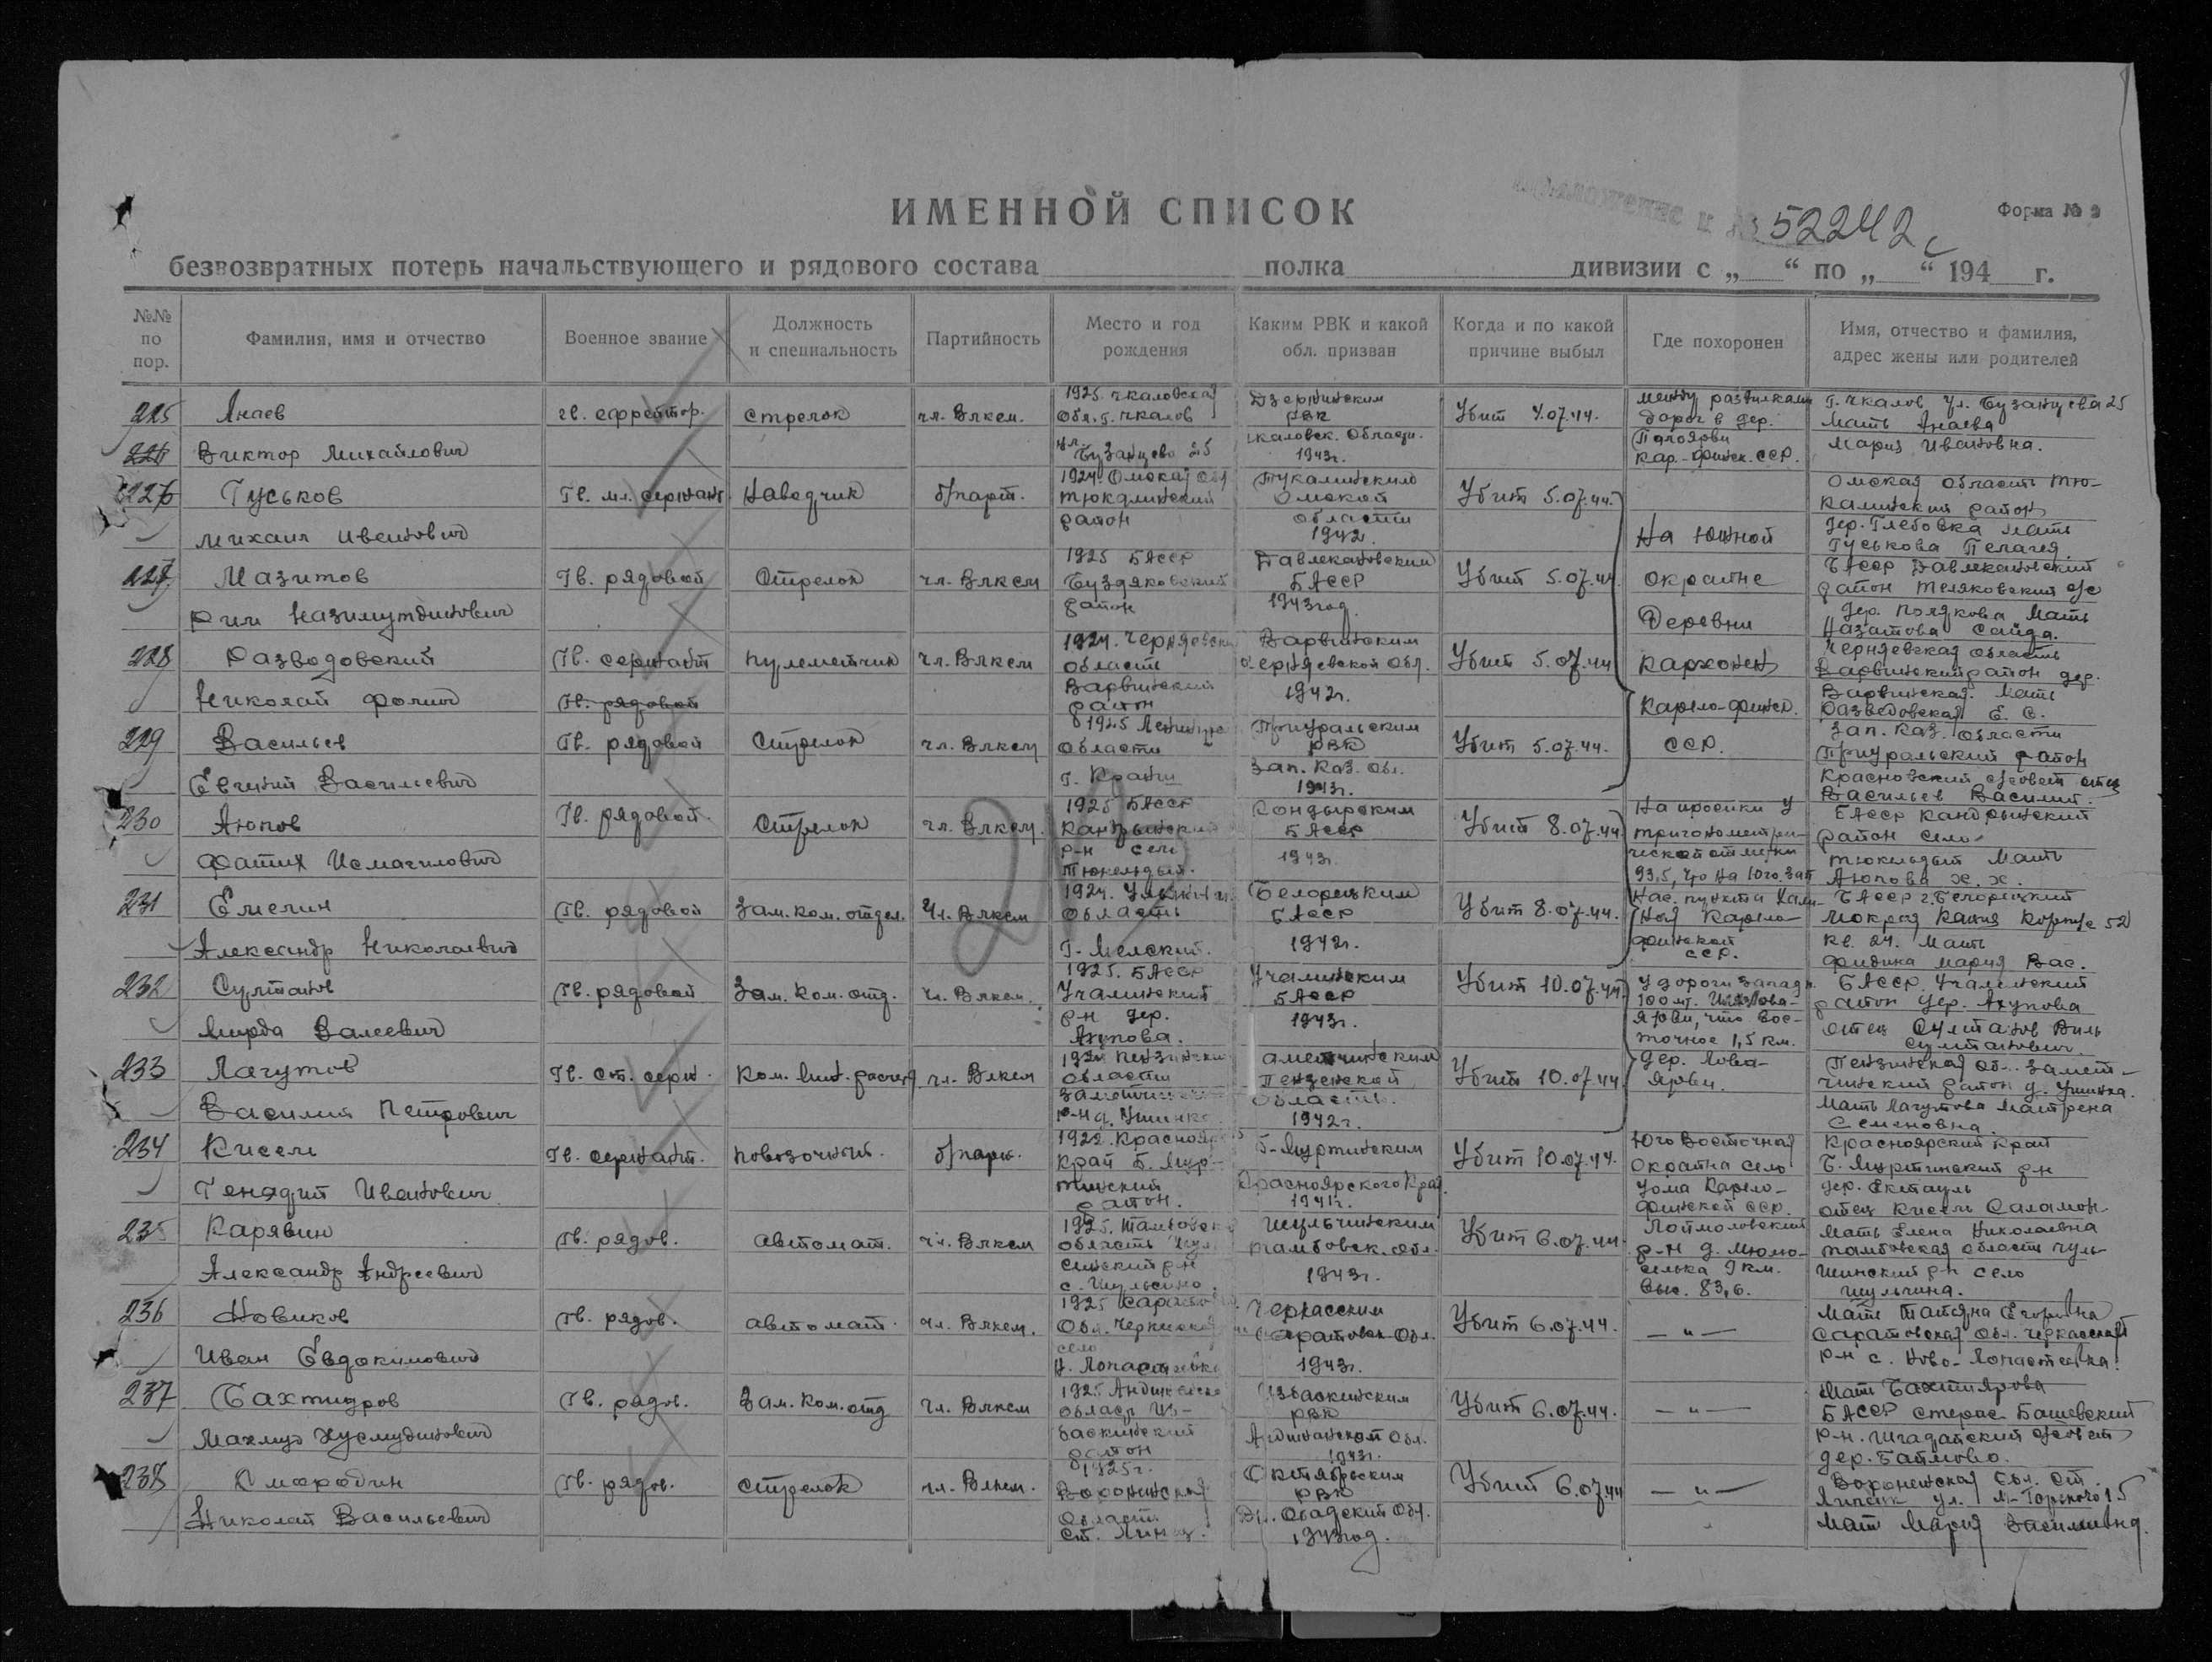 ИМЕННОЙ СПИСОК
№ 52242с
Форма № 2
безвозвратных потерь начальствующего и рядового состава полка дивизии с „ “ по „ “ 194 г.
№№ по пор.
Фамилия, имя и отчество
Военное звание
Должность и специальность
Партийность
Место и год рождения
Каким РВК и какой обл. призван
Когда и по какой причине выбыл
Где похоронен
Имя, отчество и фамилия, адрес жены или родителей
225 Анаев Виктор Михайлович
Гв. ефрейтор.
стрелок
чл. Влксм.
1925. Чкаловская Обл. г. Чкалов ул. Бузанцева 25
Дзержинским РВК Чкаловск. Области. 1943г.
Убит 4.07.44.
между развилками дорог в дер. Кар.-Финск. ССР.
Г. Чкалов Ул. Бузанцева 25 Мать Анаева Мария Ивановна.
226 Гуськов Михаил Ивенович
Гв. мл. сержант.
Наводчик
б/парт.
1924. Омская Обл Тюкалинский район
Тукалинским Омской области 1942.
Убит 5.07.44.
На южной окраине Деревни Кархонен Карело-финск. ССР.
Омская область Тюкалинский район дер. Глебовка Мать Гуськова Пелагея.
227 Мазитов Рим Назимутдинович
Гв. рядовой
Стрелок
чл. Влксм
1925 БАССР Буздяковский район
Давлекановским БАССР 1943год.
Убит 5.07.44.
БАССР Давлекановский район Теляковский с/с дер. Полякова Мать Назатова Сайда.
228 Разводовский Николай Фолич
Гв. сержант
Гв. рядовой
пулеметчик
чл. Влксм
1924. Черняевская область Варвинский район
Варвинским Черняевской Обл. 1942г.
Убит 5.07.44
Черняевская область Варвинский район дер. Варвинская. Мать Разводовская Е. С.
229 Васильев Евгений Васильевич
Гв. рядовой
Стрелок
чл. Влксм
1925 области г.
Приуральским РВК Зап. Каз. Обл. 1943г.
Убит 5.07.44.
Зап. Каз. Области Приуральский район Красновский с/совет отец Васильев Василий.
230 Аюпов Фатих Исмагилович
Гв. рядовой.
Стрелок
чл. Влксм.
1925 БАССР Кандрынский р-н село Тюкельдый.
Кондырским БАССР 1943г.
Убит 8.07.44.
На просеки у тригонометрической отметки 93,5, что на Юго. Зап Нас. пункта Карело-финской ССР.
БАССР Кандрынский район село Тюкельдый Мать Аюпова Х. Х.
231 Емелин Александр Николаевич
Гв. рядовой
Зам. ком. отдел.
Чл. Влксм
1924. область Г. Мелекий.
Белорецким БАССР 1942г.
Убит 8.07.44.
БАССР г. Белорецкий Мокрая Корпус 52 кв. 24. Мать Мария Вас.
232 Султанов Мирда Валеевич
Гв. рядовой
Зам. Ком. отд.
чл. Влксм.
1925. БАССР Учалинский р-н дер. Ахунова.
Учалинским БАССР 1943г.
Убит 10.07.44
У дороги западн. 100 мт. Лова-Ярви, что Восточнее 1,5 км.
БАССР. Учалинский район дер. Ахунова отец Султанов Виль Султанович.
233 Лагутов Василий Петрович
Гв. ст. серж.
Ком. расчета
чл. Влксм
1924 Пензинская области р-н д. Ушинка
Пензенской области. 1942г.
Убит 10.07.44.
Дер. Лова-Ярви.
Пензинская об. Заметчинский район д. Ушинка. Мать Лагутова Матрена Семеновна.
234 Кисель Генадий Иванович
Гв. сержант.
повозочный.
б/парт.
1922. Красноярс край Б. Муртинский район.
Б-Муртинским Красноярского Края. 1941г.
Убит 10.07.44.
Юго Восточная окраина село Карело-финской ССР.
Красноярский край Б. Муртинский р-н дер. Ентауль отец Кисель Саламон.
235 Карявин Александр Андреевич
Гв. рядов.
автомат.
чл. Влксм
1925. Тамбовск область
Шульчинским Тамбовск. обл. 1943г.
Убит 6.07.44.
Лоймоловский р-н д. 9 км. Выс. 83,6.
Мать Елена Николаевна Тамбовская область р-н село Шульгина.
236 Новиков Иван Евдокимович
Гв. рядов.
автомат.
чл. Влксм.
1925 Саратов Обл. Черкасский село Н. Лопастейка
Черкасским Саратовск. Обл. 1943г.
Убит 6.07.44.
— " —
Мать Татьяна Егоривна Саратовская Обл. Черкасский р-н с. Ново-Лопастейка.
237 Бахтияров Махмуд Хусмудинович
Гв. рядов.
Зам. Ком. отд
чл. Влксм
1925. Андижанская област Избаскинский район
Избаскинским РВК Андижанской Обл. 1943г.
Убит 6.07.44.
— " —
Мать Бахтиярова БАССР Башевский р-н. с/совет дер. Баймово.
238 Смородин Николай Васильевич
Гв. рядов.
стрелок
чл. Влксм.
1925г. Воронежская Область ст. Липец.
Октябрьским РВК Обл. 1943год.
Убит 6.07.44
— " —
Воронежская Обл. ст. Липецк ул. М-Горького 15 Мать Мария Василивна.